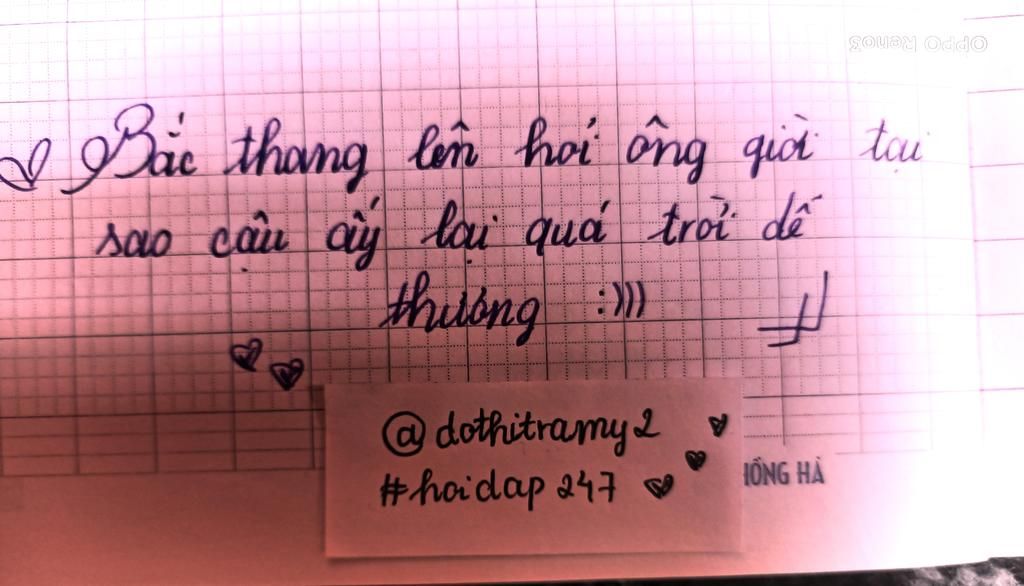 OPPO Reno3
Bắc thang lên hỏi ông giời tại
sao cậu ấy lại quá trời dễ
thương :)))
@dothitramy2
#hoidap247
HỒNG HÀ